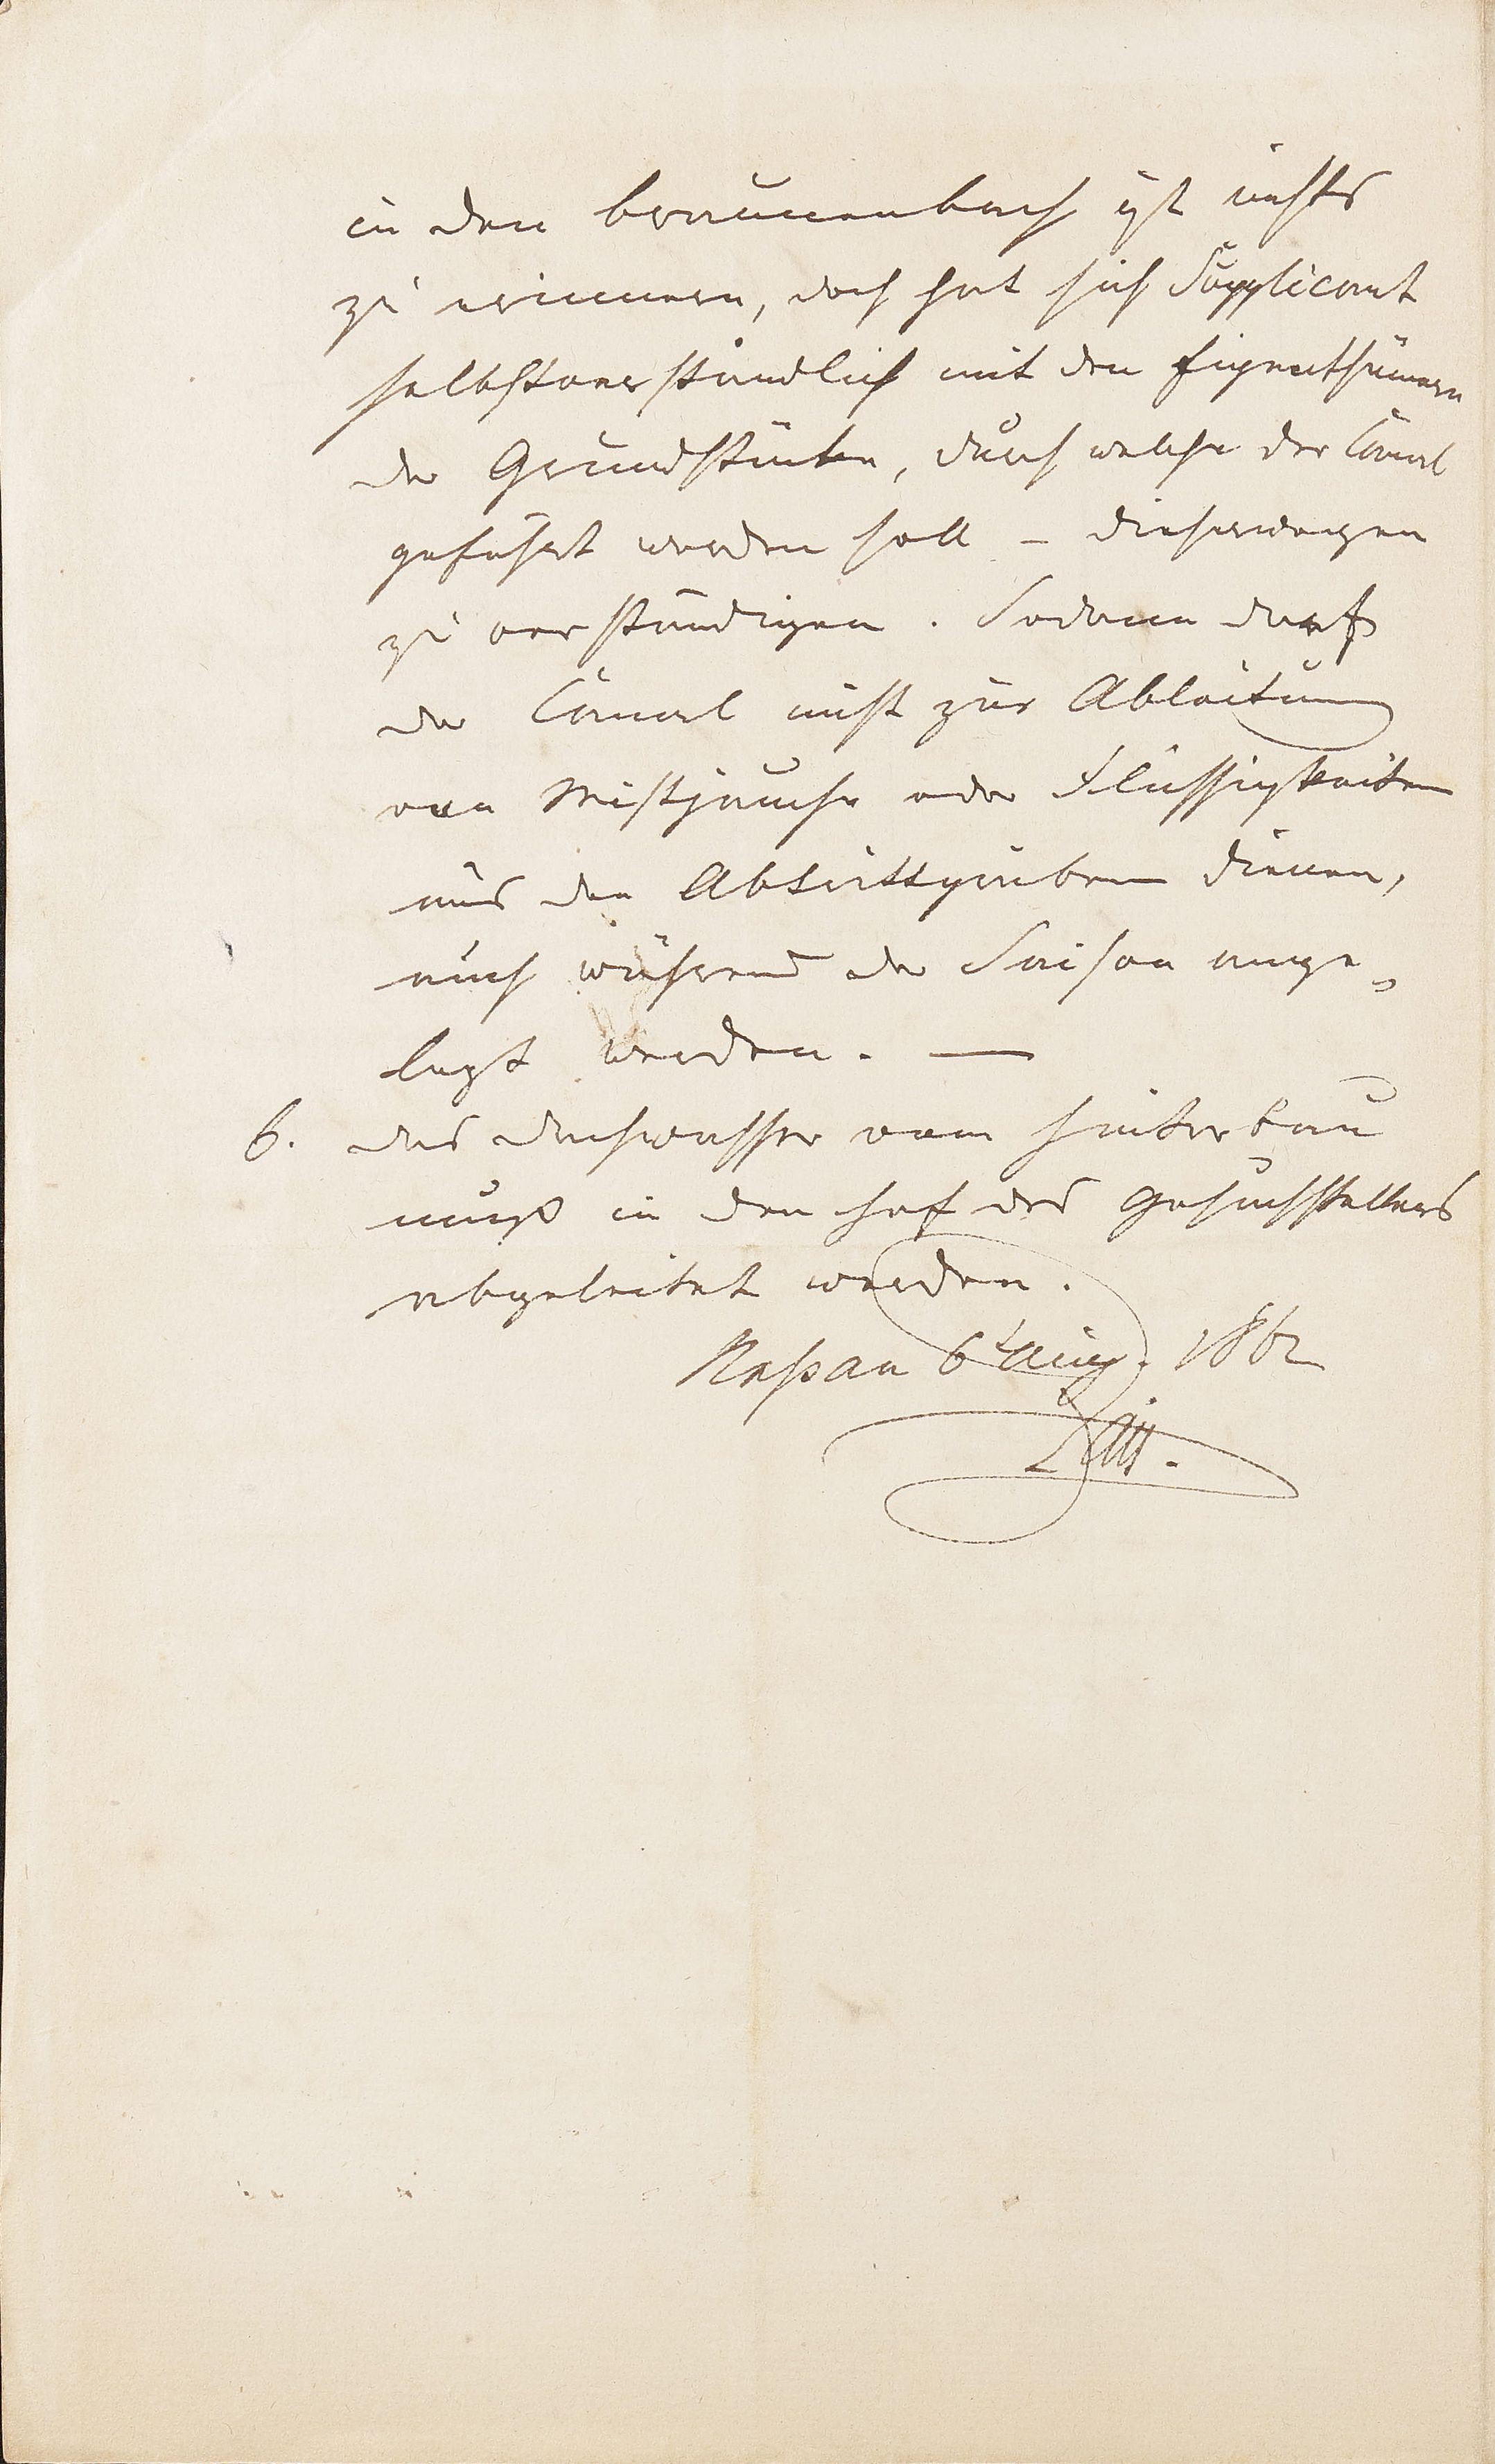 in den Braunenbach ist nichts
zu erinnern, doch hat sich Supplicant
selbstverständlich mit den Eigenthümern
der Grundstücke, durch welche der Canal
geführt werden soll – dieserwegen
zu verständigen. Sodann darf
der Canal nicht zur Ableitung
von Mistjauche oder Flüssigkeiten
aus den Abtrittgruben dienen,
auch während der Saison ange„
legt werden. —
6. das Dachwasser vom Hinterbau
muß in den Hof des Gesuchstellers
abgeleitet werden.
Naßau 6t Aug. 1862